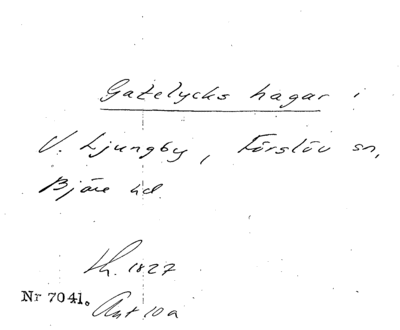 Gatelycks hagar i
V. Ljungby, Förslöv sn,
Bjäre hd.
Lh. 1827
Nr 7041.
Ant 10a